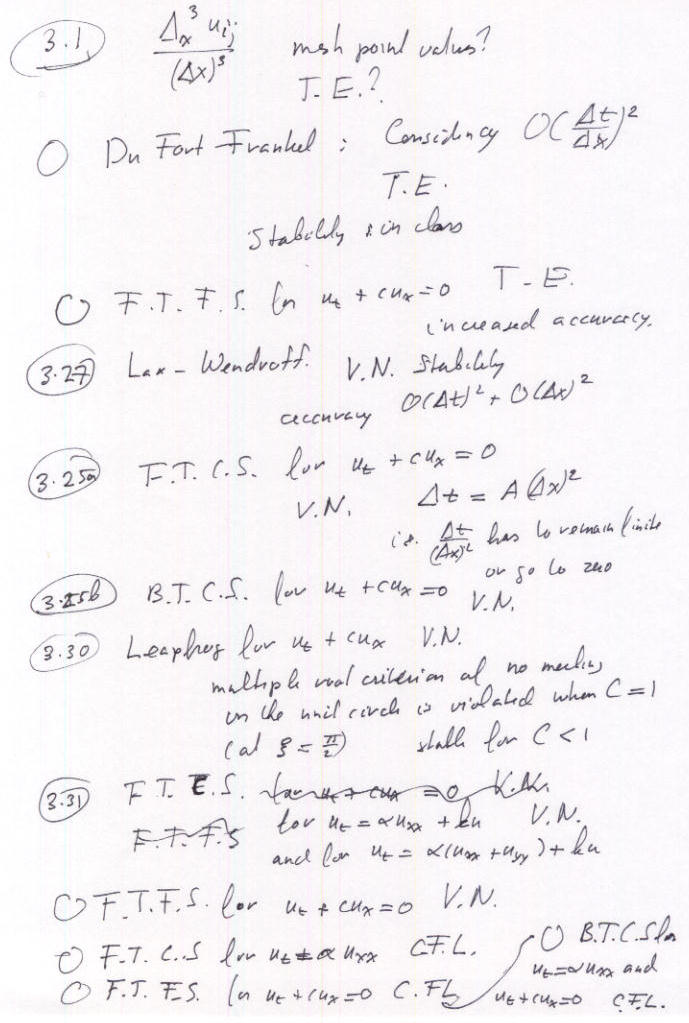 3.1 Δₓ³ uᵢⱼ / (Δx)³ mesh point values?
T.E.?
O Du Fort Frankel : Consistency O(Δt/Δx)²
T.E.
Stability : in class
O F.T.F.S. for uₜ + cuₓ = 0 T-E.
increased accuracy.
3.27 Lax-Wendroff. V.N. Stability
accuracy O(Δt)² + O(Δx)²
3.25a F.T.C.S. for uₜ + cuₓ = 0
V.N. Δt = A(Δx)²
i.e. Δt/(Δx)² has to remain finite
or go to zero
3.25b B.T.C.S. for uₜ + cuₓ = 0 V.N.
3.30 Leapfrog for uₜ + cuₓ V.N.
multiple root criterion of no
on the unit circle is violated when C = 1
(at ξ = π/2) stable for C < 1
3.31 F.T.C.S. for uₜ + cuₓ = 0 V.N.
F.T.F.S for uₜ = αuₓₓ + ku V.N.
and for uₜ = α(uₓₓ + u_yy) + ku
O F.T.F.S. for uₜ + cuₓ = 0 V.N.
O F.T.C.S for uₜ = α uₓₓ C.F.L.
O F.T.F.S. for uₜ + cuₓ = 0 C.FL
O B.T.C.S for
uₜ = αuₓₓ and
uₜ + cuₓ = 0 C.F.L.